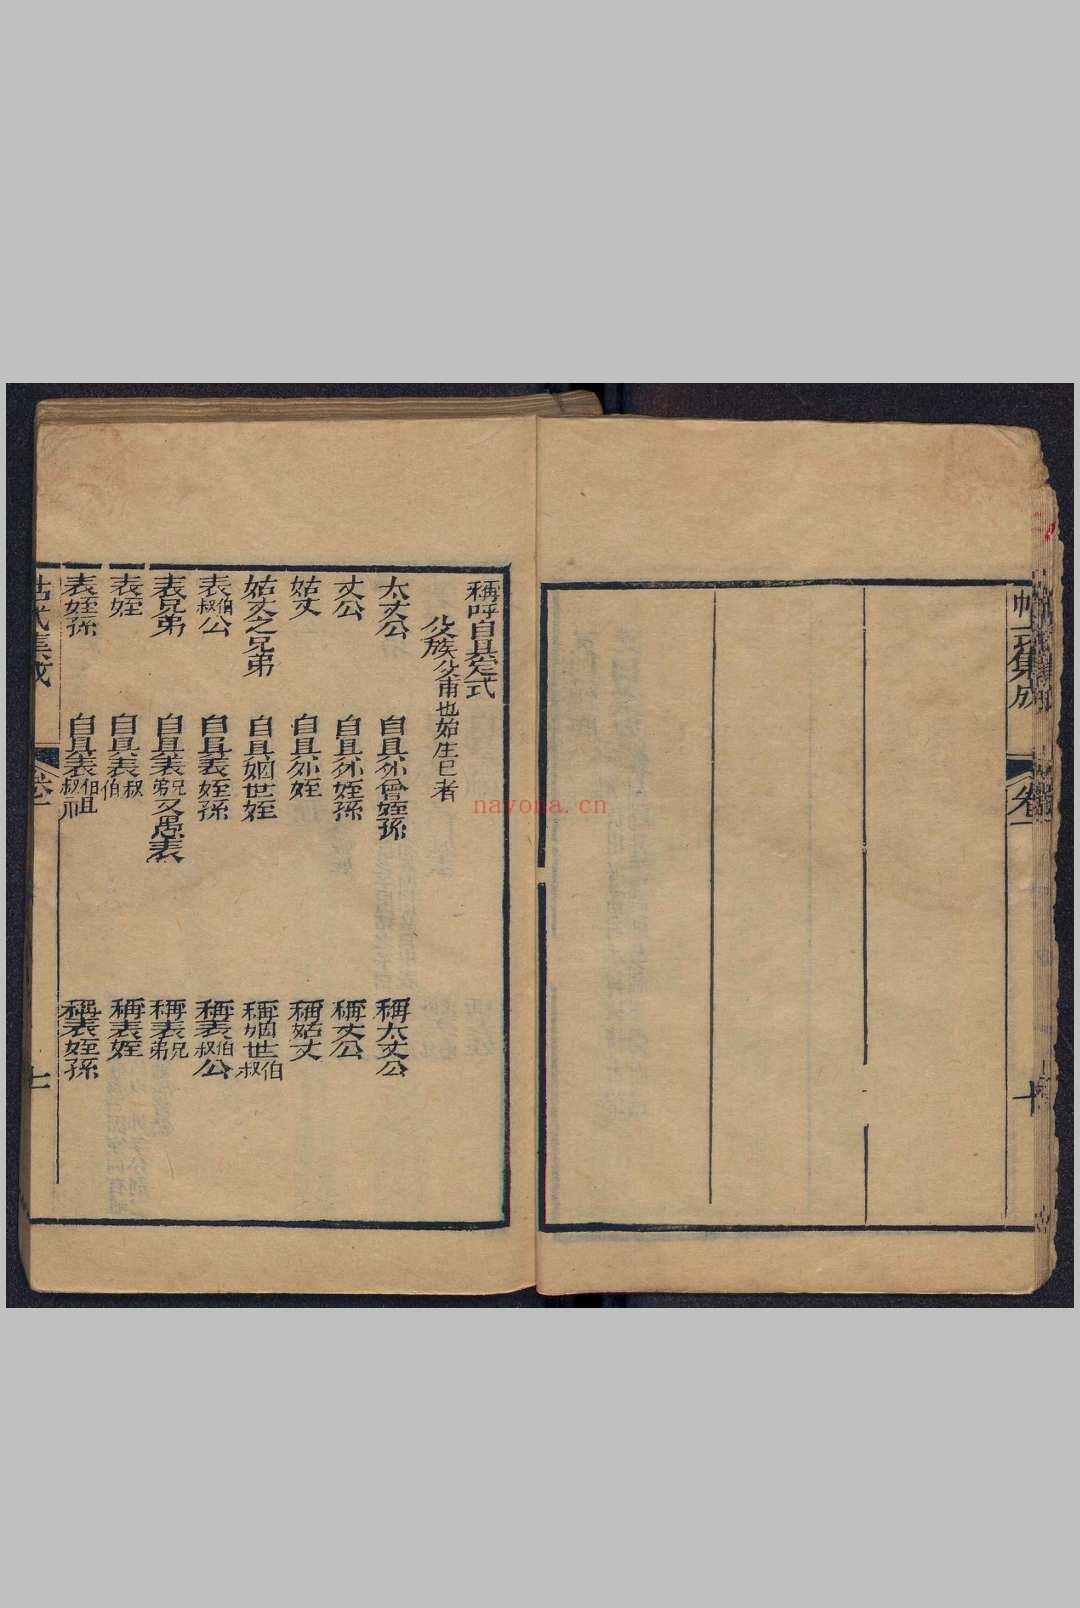 集成
卷一
十
稱呼自具定式
父族父甫也始生已者
太丈公 自具外曾姪孫 稱太丈公
丈公 自具外姪孫 稱丈公
姑丈 自具外姪 稱姑丈
姑丈之兄弟 自具姻世姪 稱姻世伯叔
表伯叔公 自具表姪孫 稱表伯叔公
表兄弟 自具表兄弟又愚表 稱表兄弟
表姪 自具表叔伯 稱表姪
表姪孫 自具表伯叔祖 稱表姪孫
式集成
卷一
十
nayona.cn